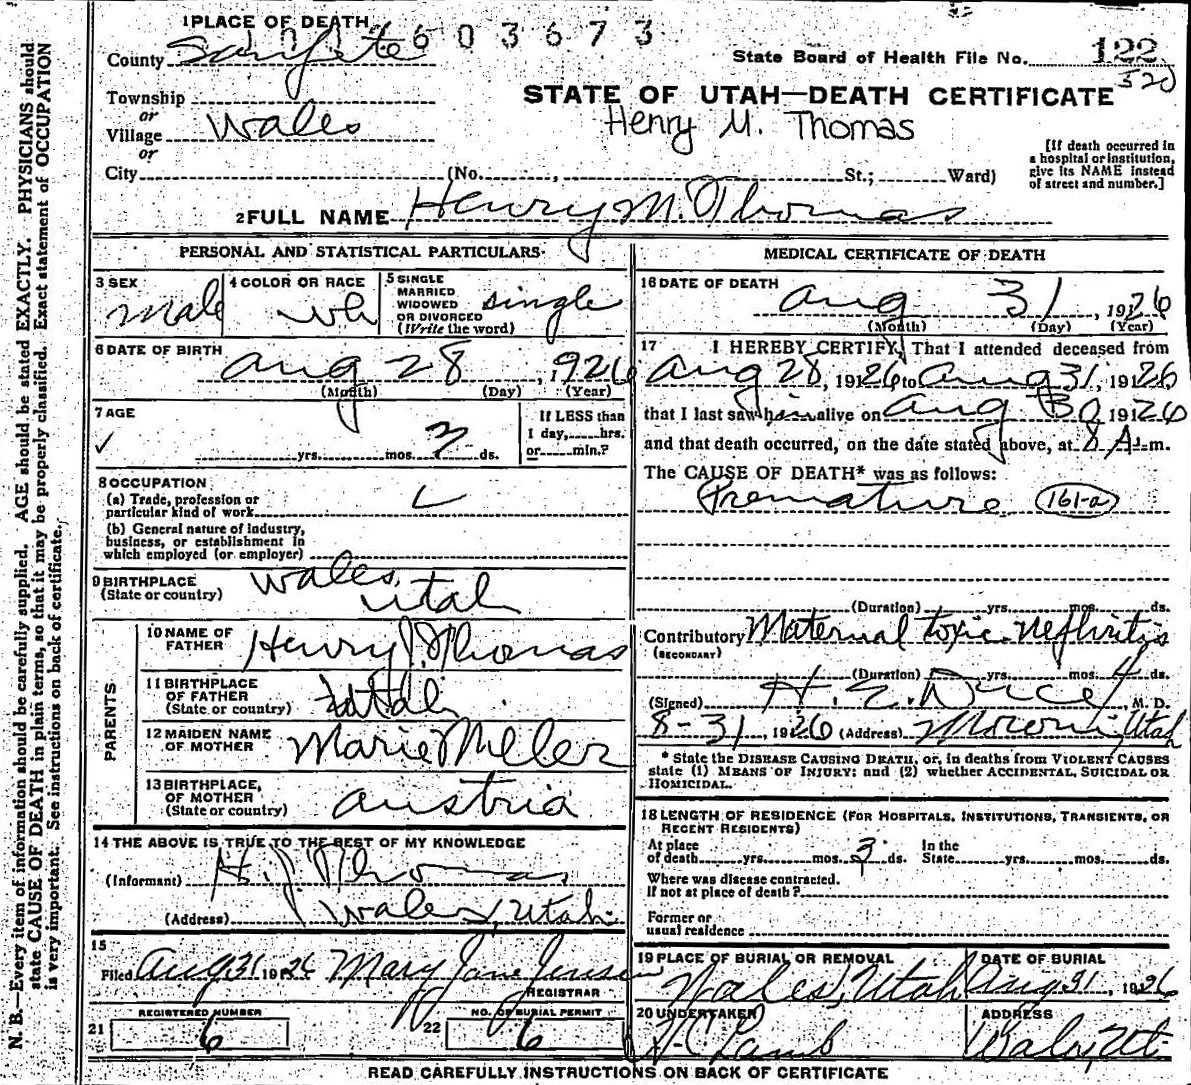 1 PLACE OF DEARTH
1012603673
County Sanpete
State Board of Health File No. 122
520
Township
or
Village Wales
or
STATE OF UTAH—DEATH CERTIFICATE
Henry M. Thomas
City (No. , St.; Ward)
[If death occurred in
a hospital or institution,
give its NAME instead
of street and number.]
2 FULL NAME Henry M. Thomas
PERSONAL AND STATISTICAL PARTICULARS
3 SEX
Male
4 COLOR OR RACE
wh
5 SINGLE
MARRIED
WIDOWED
OR DIVORCED
(Write the word)
single
6 DATE OF BIRTH
Aug 28, 1926
(Month) (Day) (Year)
7 AGE
yrs. mos. 3 ds.
If LESS than
1 day, hrs.
or min.?
8 OCCUPATION
(a) Trade, profession or
particular kind of work
(b) General nature of industry,
business, or establishment in
which employed (or employer)
9 BIRTHPLACE
(State or country)
Wales,
Utah
PARENTS
10 NAME OF
FATHER
Henry J. Thomas
11 BIRTHPLACE
OF FATHER
(State or country)
Utah
12 MAIDEN NAME
OF MOTHER
Marie Miller
13 BIRTHPLACE,
OF MOTHER
(State or country)
Austria
14 THE ABOVE IS TRUE TO THE BEST OF MY KNOWLEDGE
(Informant) H. J. Thomas
(Address) Wales, Utah
15
Filed Aug 31 1926 Mary Jane Jensen
REGISTRAR
21
REGISTERED NUMBER
6
22
NO. OF BURIAL PERMIT
6
MEDICAL CERTIFICATE OF DEATH
16 DATE OF DEATH
Aug 31, 1926
(Month) (Day) (Year)
17 I HEREBY CERTIFY, That I attended deceased from
Aug 28, 1926 to Aug 31, 1926
that I last saw him alive on Aug 30 1926
and that death occurred, on the date stated above, at 8 A.m.
The CAUSE OF DEATH* was as follows:
Premature 161-a
(Duration) yrs. mos. ds.
Contributory Maternal toxic nephritis
(SECONDARY)
(Duration) yrs. mos. 4 ds.
(Signed) M. D.
8-31, 1926 (Address) Moroni, Utah
* State the DISEASE CAUSING DEATH, or, in deaths from VIOLENT CAUSES
state (1) MEANS OF INJURY; and (2) whether ACCIDENTAL, SUICIDAL OR
HOMICIDAL.
18 LENGTH OF RESIDENCE (FOR HOSPITALS, INSTITUTIONS, TRANSIENTS, OR
RECENT RESIDENTS)
At place
of death yrs. mos. 3 ds.
In the
State yrs. mos. ds.
Where was disease contracted.
If not at place of death?
Former or
usual residence
19 PLACE OF BURIAL OR REMOVAL
Wales, Utah
DATE OF BURIAL
Aug 31, 1926
20 UNDERTAKER
Lamb
ADDRESS
Wales, Ut.
READ CAREFULLY INSTRUCTIONS ON BACK OF CERTIFICATE
N. B.—Every item of information should be carefully supplied. AGE should be stated EXACTLY. PHYSICIANS should
state CAUSE OF DEATH in plain terms, so that it may be properly classified. Exact statement of OCCUPATION
is very important. See instructions on back of certificate.